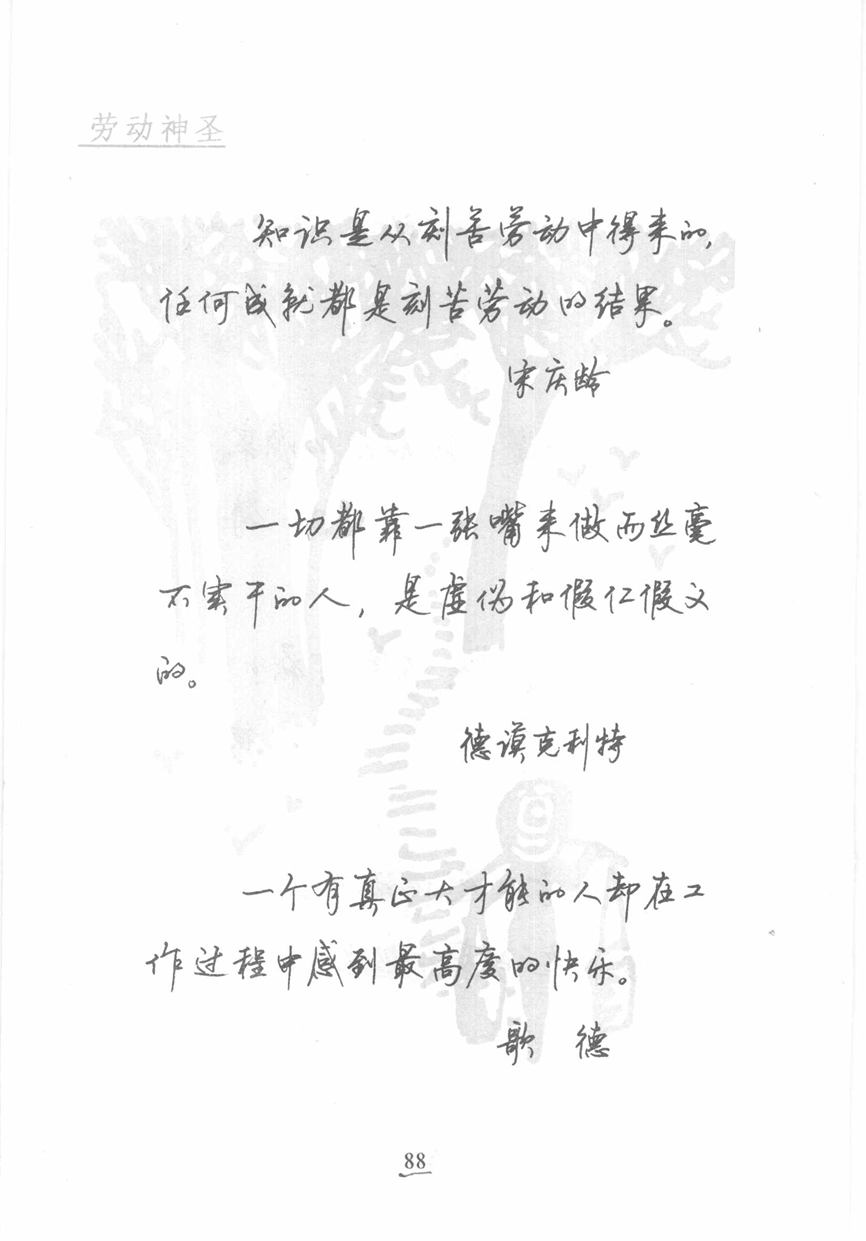 劳动神圣
知识是从刻苦劳动中得来的，
任何成就都是刻苦劳动的结果。
宋庆龄
一切都靠一张嘴来做而丝毫
不实干的人，是虚伪和假仁假义
的。
德谟克利特
一个有真正大才能的人却在工
作过程中感到最高度的快乐。
歌 德
88